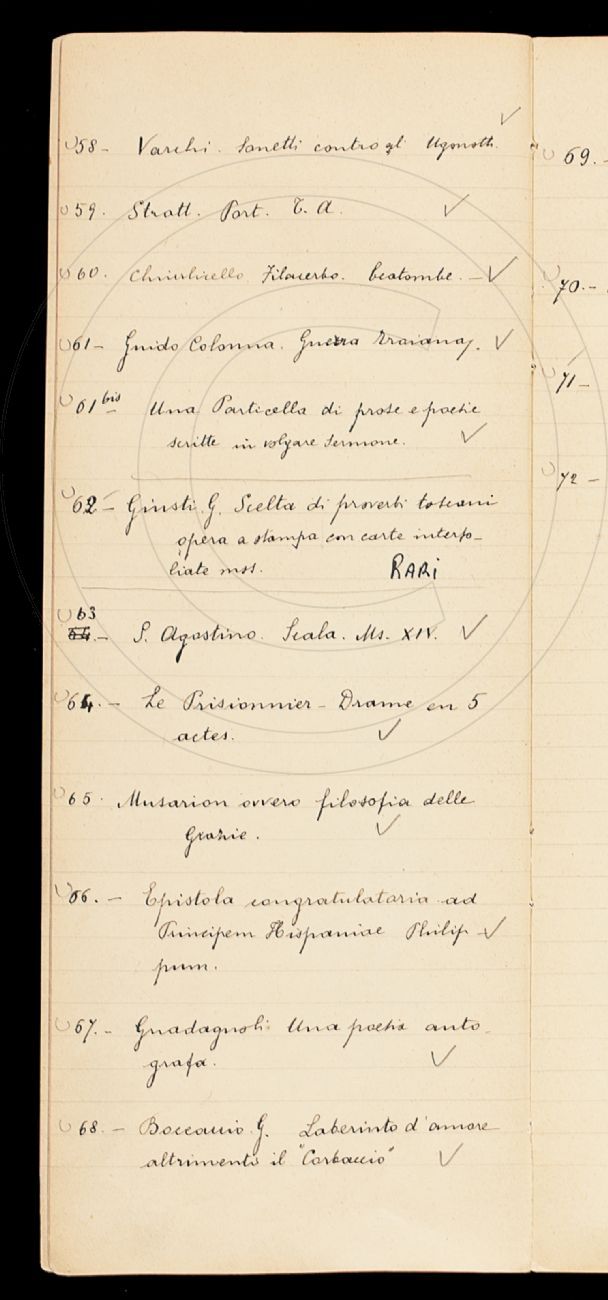 58 - Varchi. Sonetti contro gl' Ugonotti.
59. Stratt. Port. T. A.
60. Filacerbo. Ecatombe. -
61 - Guido Colonna. Guerra Troiana.
61 bis - Una Particella di prose e poesie
scritte in volgare sermone.
62 - Giusti G. Scelta di proverbi toscani
opera a stampa con carte interfo-
liate mss. RARI
63 - S. Agostino. Scala. Ms. XIV.
64. - Le Prisionnier - Drame en 5
actes.
65. Musarion ovvero filosofia delle
Grazie.
66. - Epistola congratulatoria ad
Principem Hispaniae Philip-
pum.
67. - Guadagnoli Una poesia auto-
grafa.
68. - Boccaccio G. Laberinto d'amore
altrimenti il "Corbaccio"
69. -
70. -
71 -
72 -